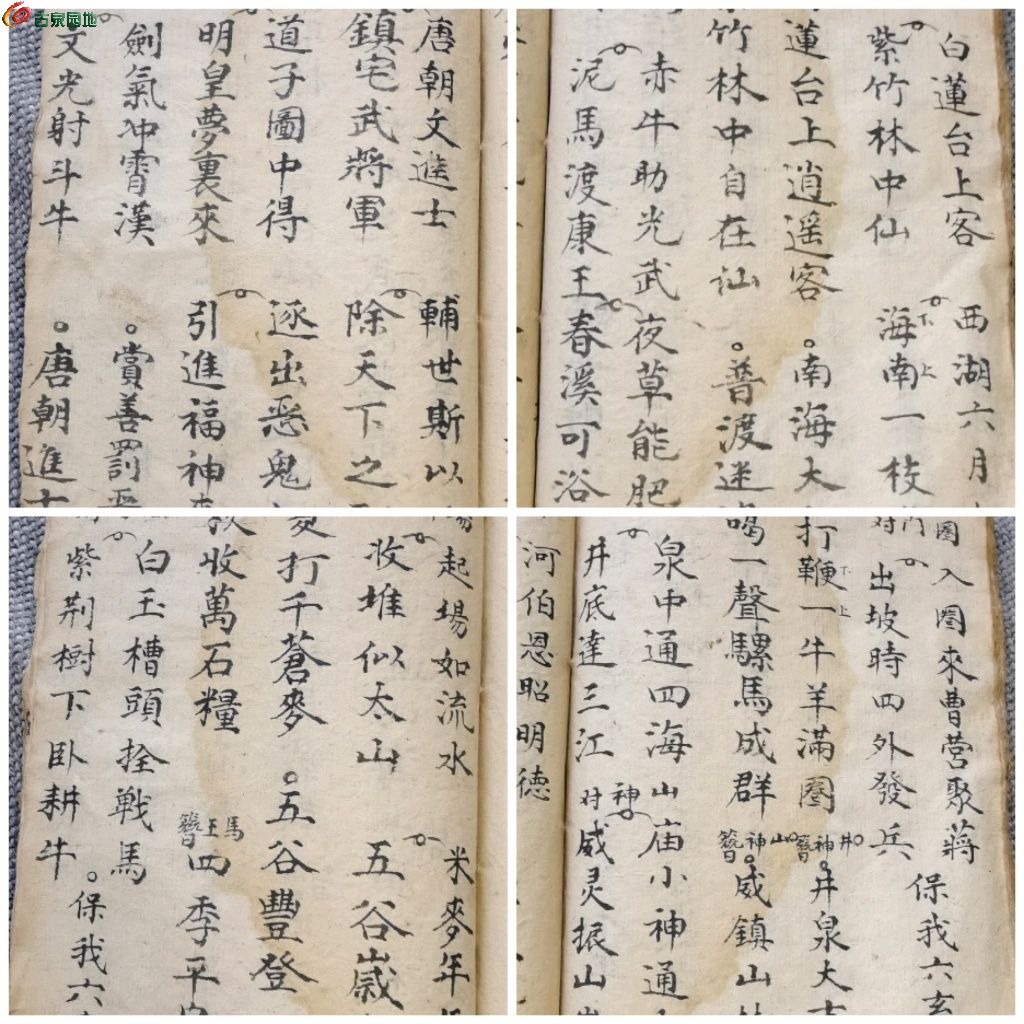 古泉园地
唐朝文進士 輔世斯以
鎮宅武將軍 除天下之
道子圖中得 逐出惡鬼
明皇夢裏來 引進福神
劍氣冲霄漢 賞善罰
文光射斗牛 唐朝進
白蓮台上客 西湖六月
紫竹林中仙 海下南上一枝
蓮台上逍遥客 南海大
竹林中自在仙 普渡迷
赤牛助光武 夜草能肥
泥馬渡康王 春溪可浴
起場如流水 米麥年
收堆似太山 五谷歲
打千蒼麥 五谷豐登
收萬石糧 馬王簪 四季平
白玉槽頭拴戦馬
紫荆樹下卧耕牛 保我六
圈入圈來曹营聚蔣 保我六玄
対出坡時四外發兵
打鞭下一上牛羊滿圈 井神簪 井泉大
喝一聲騾馬成群 山神簪 威鎮山
泉中通四海 山庙小神通
井底達三江 神対 威灵振山
河伯恩昭明德